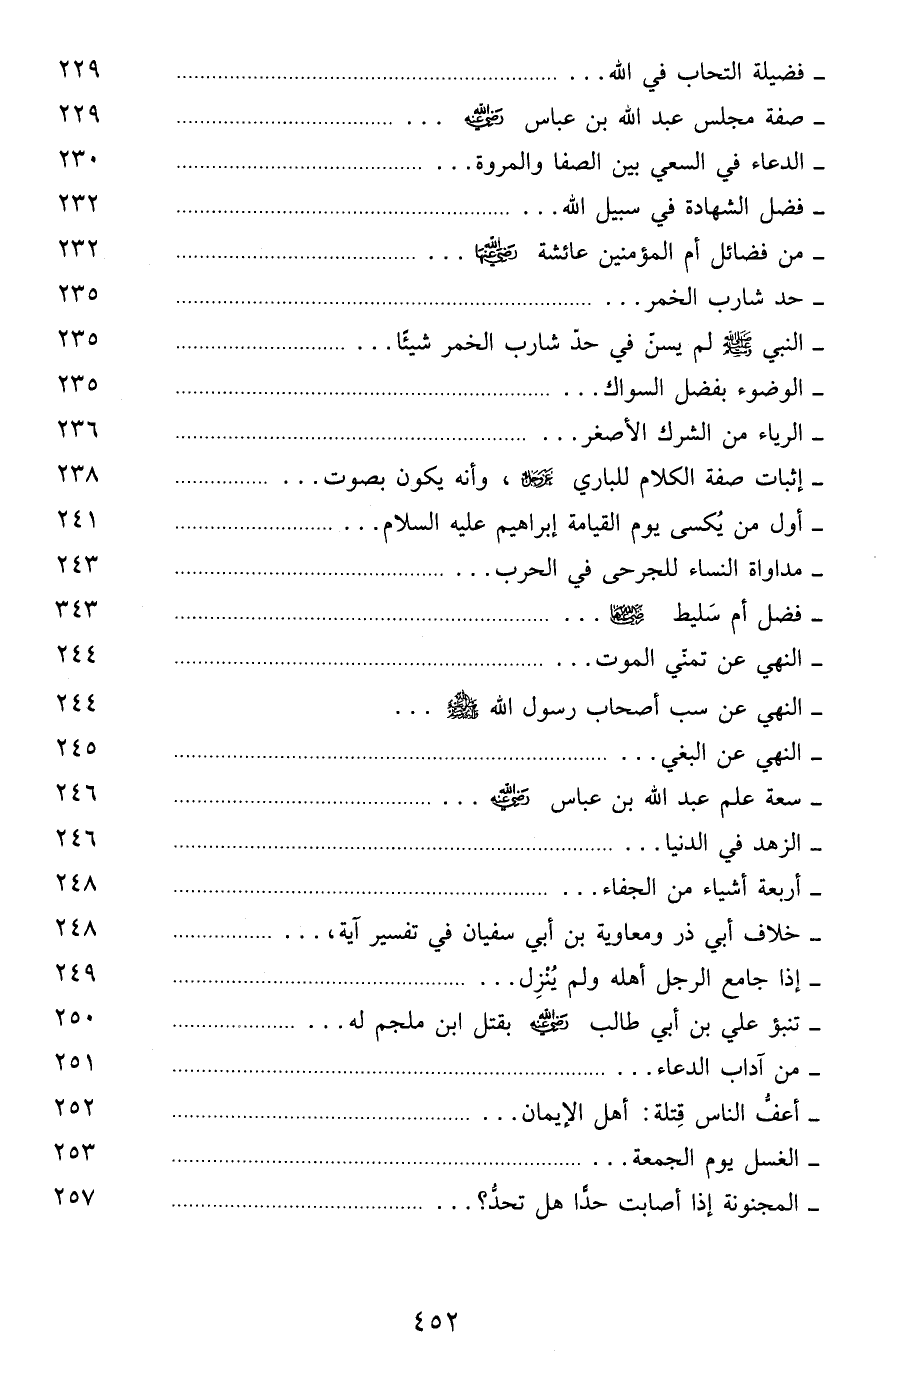 ـ فضيلة التحاب في الله... ........ ٢٢٩
ـ صفة مجلس عبد الله بن عباس رضي الله عنه ... ........ ٢٢٩
ـ الدعاء في السعي بين الصفا والمروة... ........ ٢٣٠
ـ فضل الشهادة في سبيل الله... ........ ٢٣٢
ـ من فضائل أم المؤمنين عائشة رضي الله عنها ... ........ ٢٣٢
ـ حد شارب الخمر... ........ ٢٣٥
ـ النبي ﷺ لم يسنّ في حدّ شارب الخمر شيئًا... ........ ٢٣٥
ـ الوضوء بفضل السواك... ........ ٢٣٥
ـ الرياء من الشرك الأصغر... ........ ٢٣٦
ـ إثبات صفة الكلام للباري عز وجل ، وأنه يكون بصوت... ........ ٢٣٨
ـ أول من يُكسى يوم القيامة إبراهيم عليه السلام... ........ ٢٤١
ـ مداواة النساء للجرحى في الحرب... ........ ٢٤٣
ـ فضل أم سَليط رضي الله عنها ... ........ ٣٤٣
ـ النهي عن تمنّي الموت... ........ ٢٤٤
ـ النهي عن سب أصحاب رسول الله ﷺ ... ٢٤٤
ـ النهي عن البغي... ........ ٢٤٥
ـ سعة علم عبد الله بن عباس رضي الله عنه ... ........ ٢٤٦
ـ الزهد في الدنيا... ........ ٢٤٦
ـ أربعة أشياء من الجفاء... ........ ٢٤٨
ـ خلاف أبي ذر ومعاوية بن أبي سفيان في تفسير آية،... ........ ٢٤٨
ـ إذا جامع الرجل أهله ولم يُنْزِل... ........ ٢٤٩
ـ تنبؤ علي بن أبي طالب رضي الله عنه بقتل ابن ملجم له... ........ ٢٥٠
ـ من آداب الدعاء... ........ ٢٥١
ـ أعفُّ الناس قِتلة: أهل الإيمان... ........ ٢٥٢
ـ الغسل يوم الجمعة... ........ ٢٥٣
ـ المجنونة إذا أصابت حدًّا هل تحدُّ؟... ........ ٢٥٧
٤٥٢